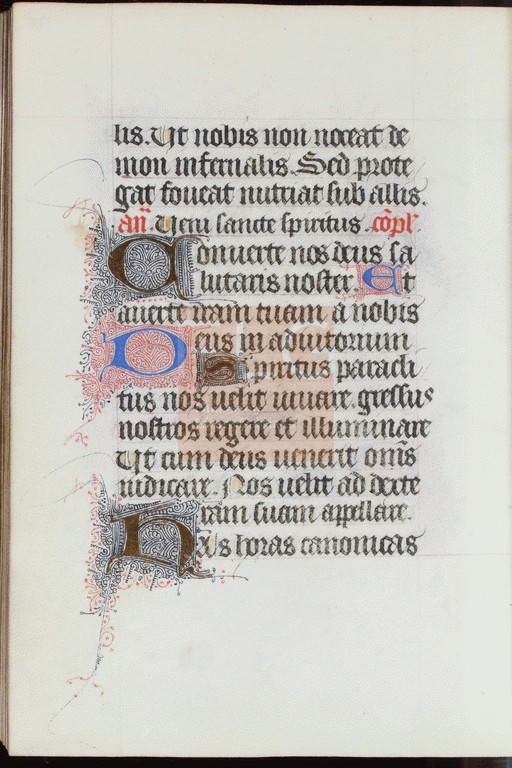 lis. Ut nobis non noceat de
mon infernalis. Sed prote
gat foveat nutriat sub allis.
añ. Veni sancte spiritus. cōpl'
Converte nos deus sa
lutaris noster. Et
averte iram tuam a nobis
Deus in adiutorium
Spiritus paracli
tus nos velit iuvare. gressus
nostros regere et illuminare
Ut cum deus venerit om̄s
iudicare. Nos velit ad dexte
ram suam appellare.
has horas canonicas